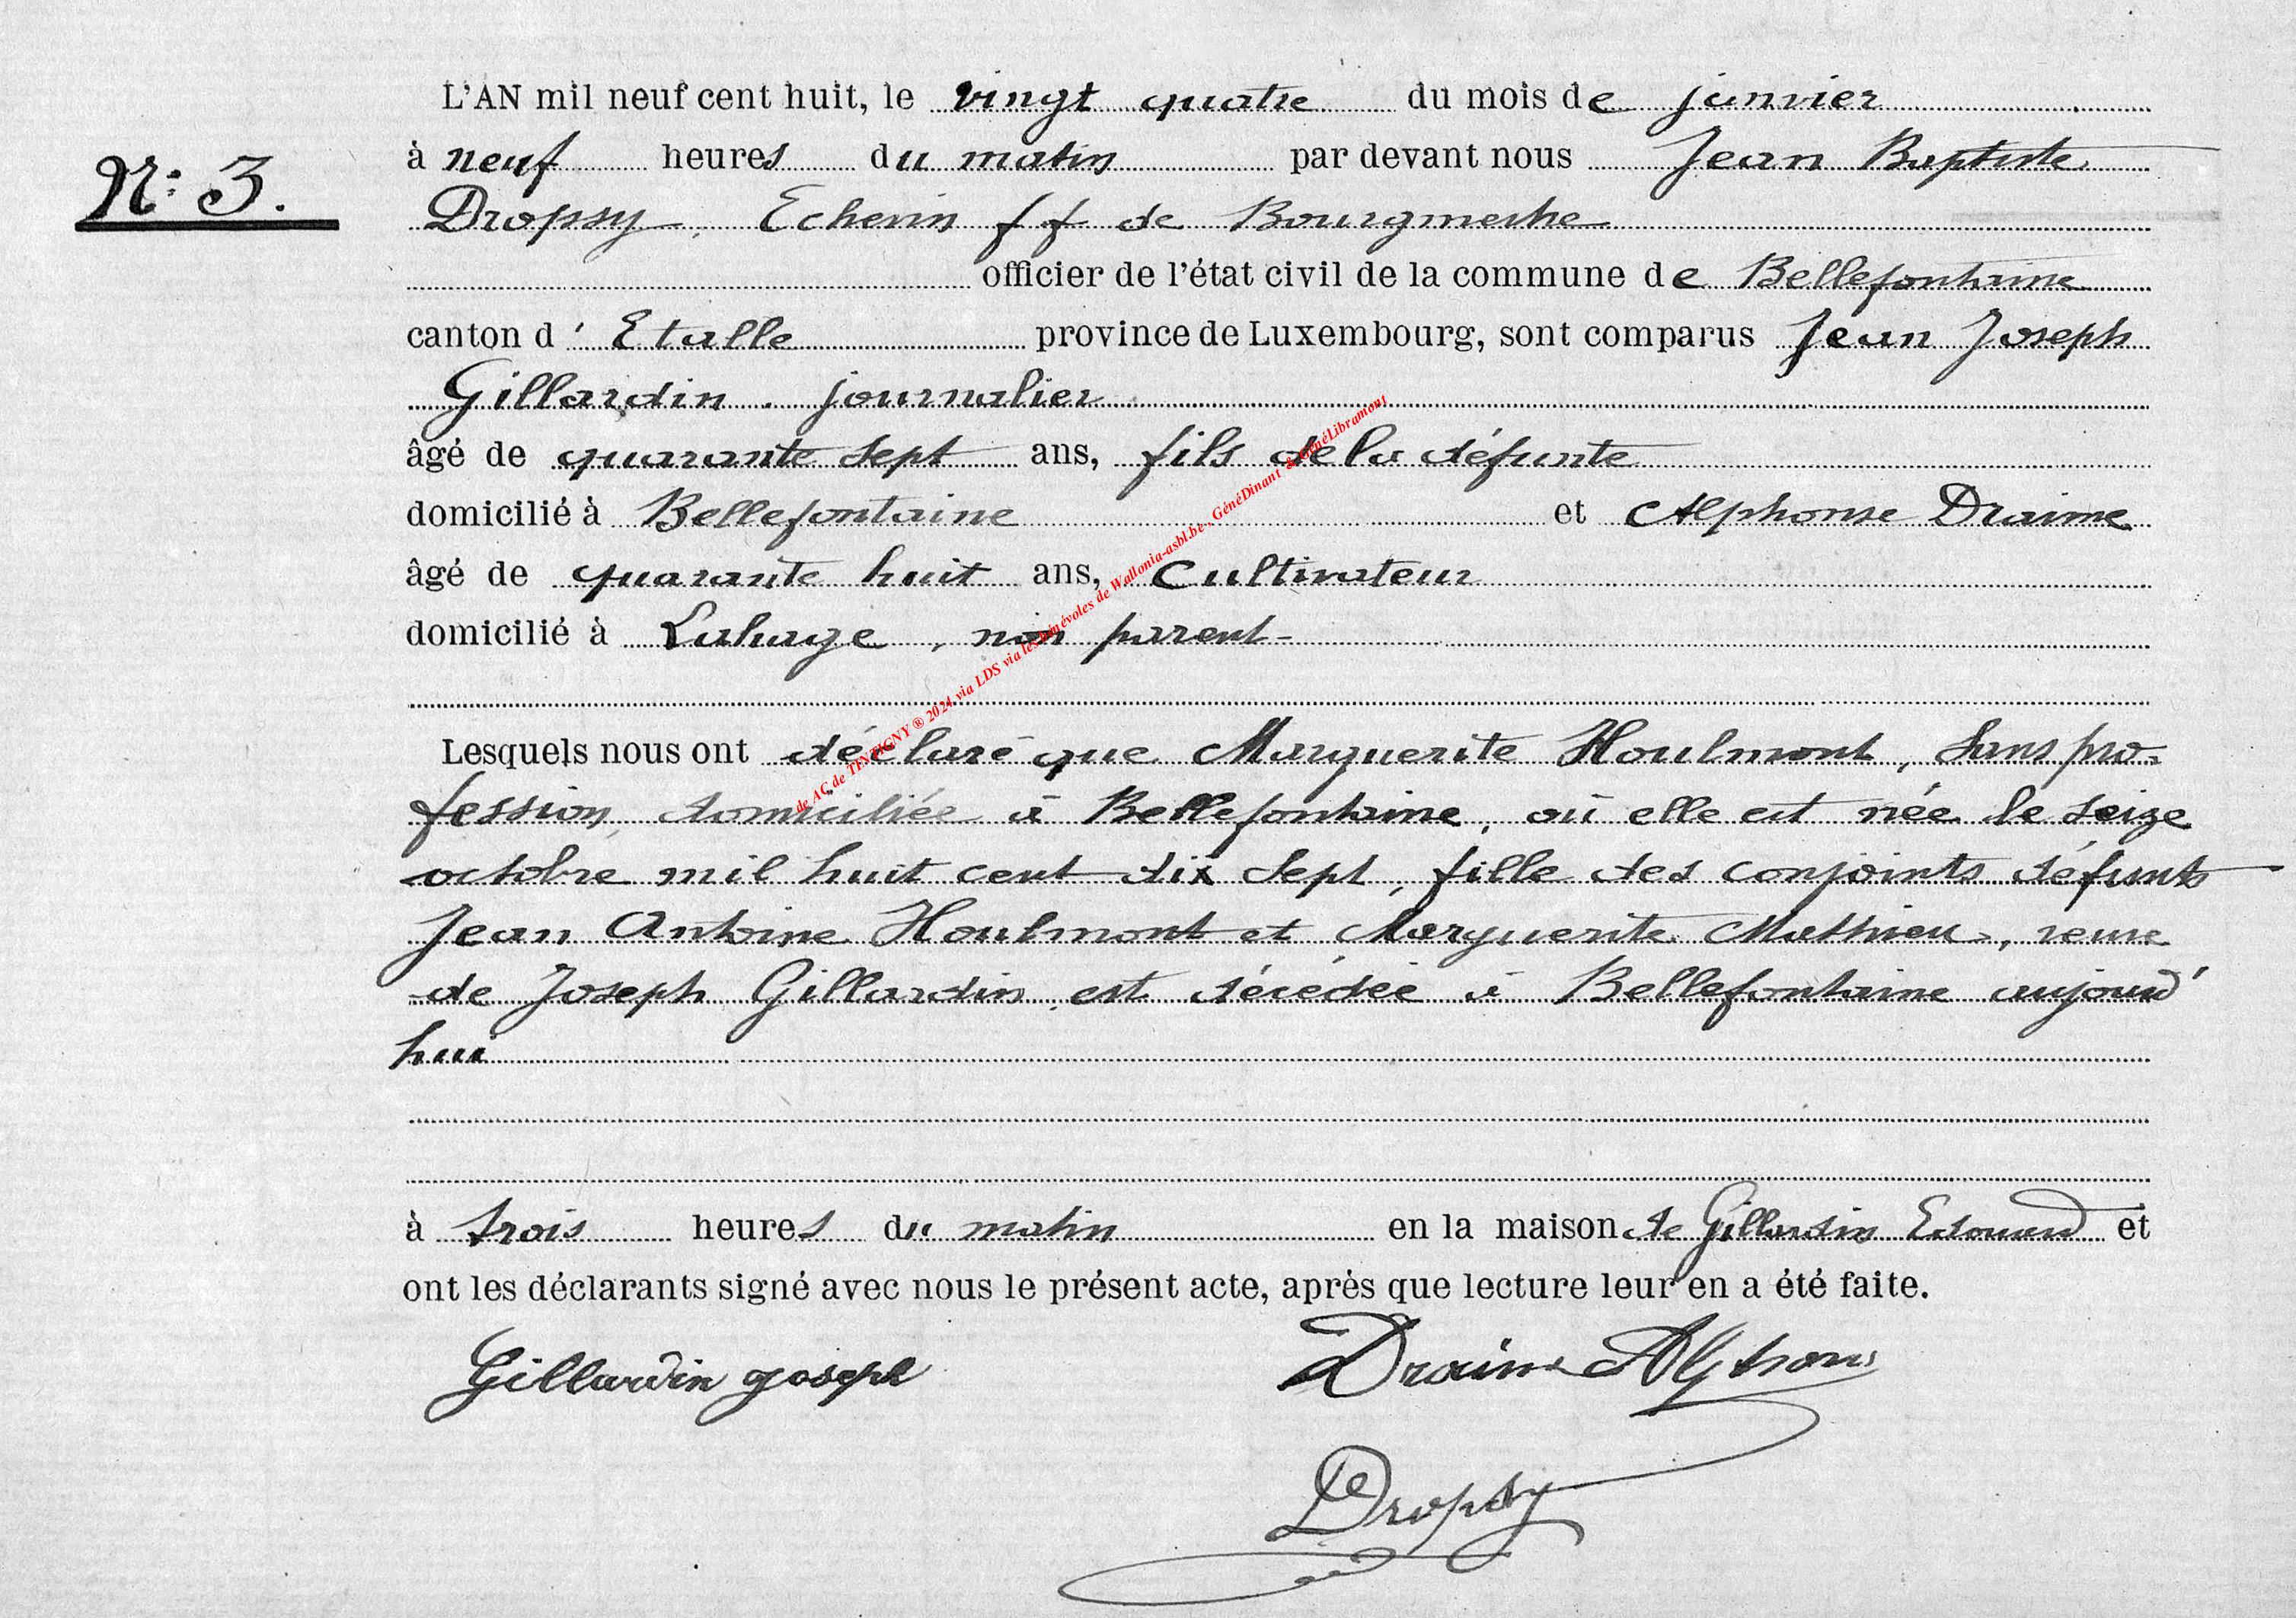 L'AN mil neuf cent huit, le vingt quatre du mois de janvier
à neuf heures du matin par devant nous Jean Baptiste
N: 3.
Dropsy, Echevin ff de Bourgmestre
officier de l'état civil de la commune de Bellefontaine
canton d' Etalle province de Luxembourg, sont comparus Jean Joseph
Gillardin. journalier
âgé de quarante sept ans, fils de la défunte
domicilié à Bellefontaine et Alphonse Draime
âgé de quarante huit ans, Cultivateur
domicilié à Lahage, non parent-
Lesquels nous ont déclaré que Marguerite Houlmont, sans pro-
fession, domiciliée à Bellefontaine, où elle est née le seize
octobre mil huit cent dix sept, fille des conjoints défunts
Jean Antoine Houlmont et Marguerite Mathieu, veuve
de Joseph Gillardin, est décédée à Bellefontaine aujourd'
hui
à trois heures du matin en la maison de Gillardin Edouard et
ont les déclarants signé avec nous le présent acte, après que lecture leur en a été faite.
Gillardin Joseph Draime Alphons
Dropsy
de AC de TINTIGNY ® 2024 via LDS via les bénévoles de Wallonia-asbl.be, GénéDinant & GénéLibramont